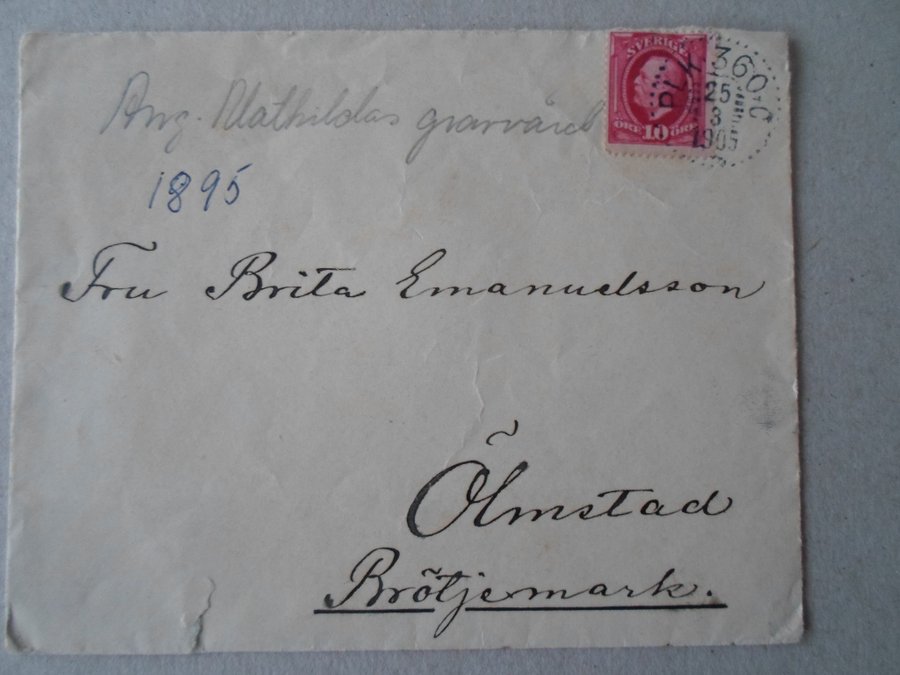 SVERIGE
ÖRE 10 ÖRE
PLK 360 C
25
3
1905
Ang. Mathildas gravvård
1895
Fru Brita Emanuelsson
Ölmstad
Brötjemark.